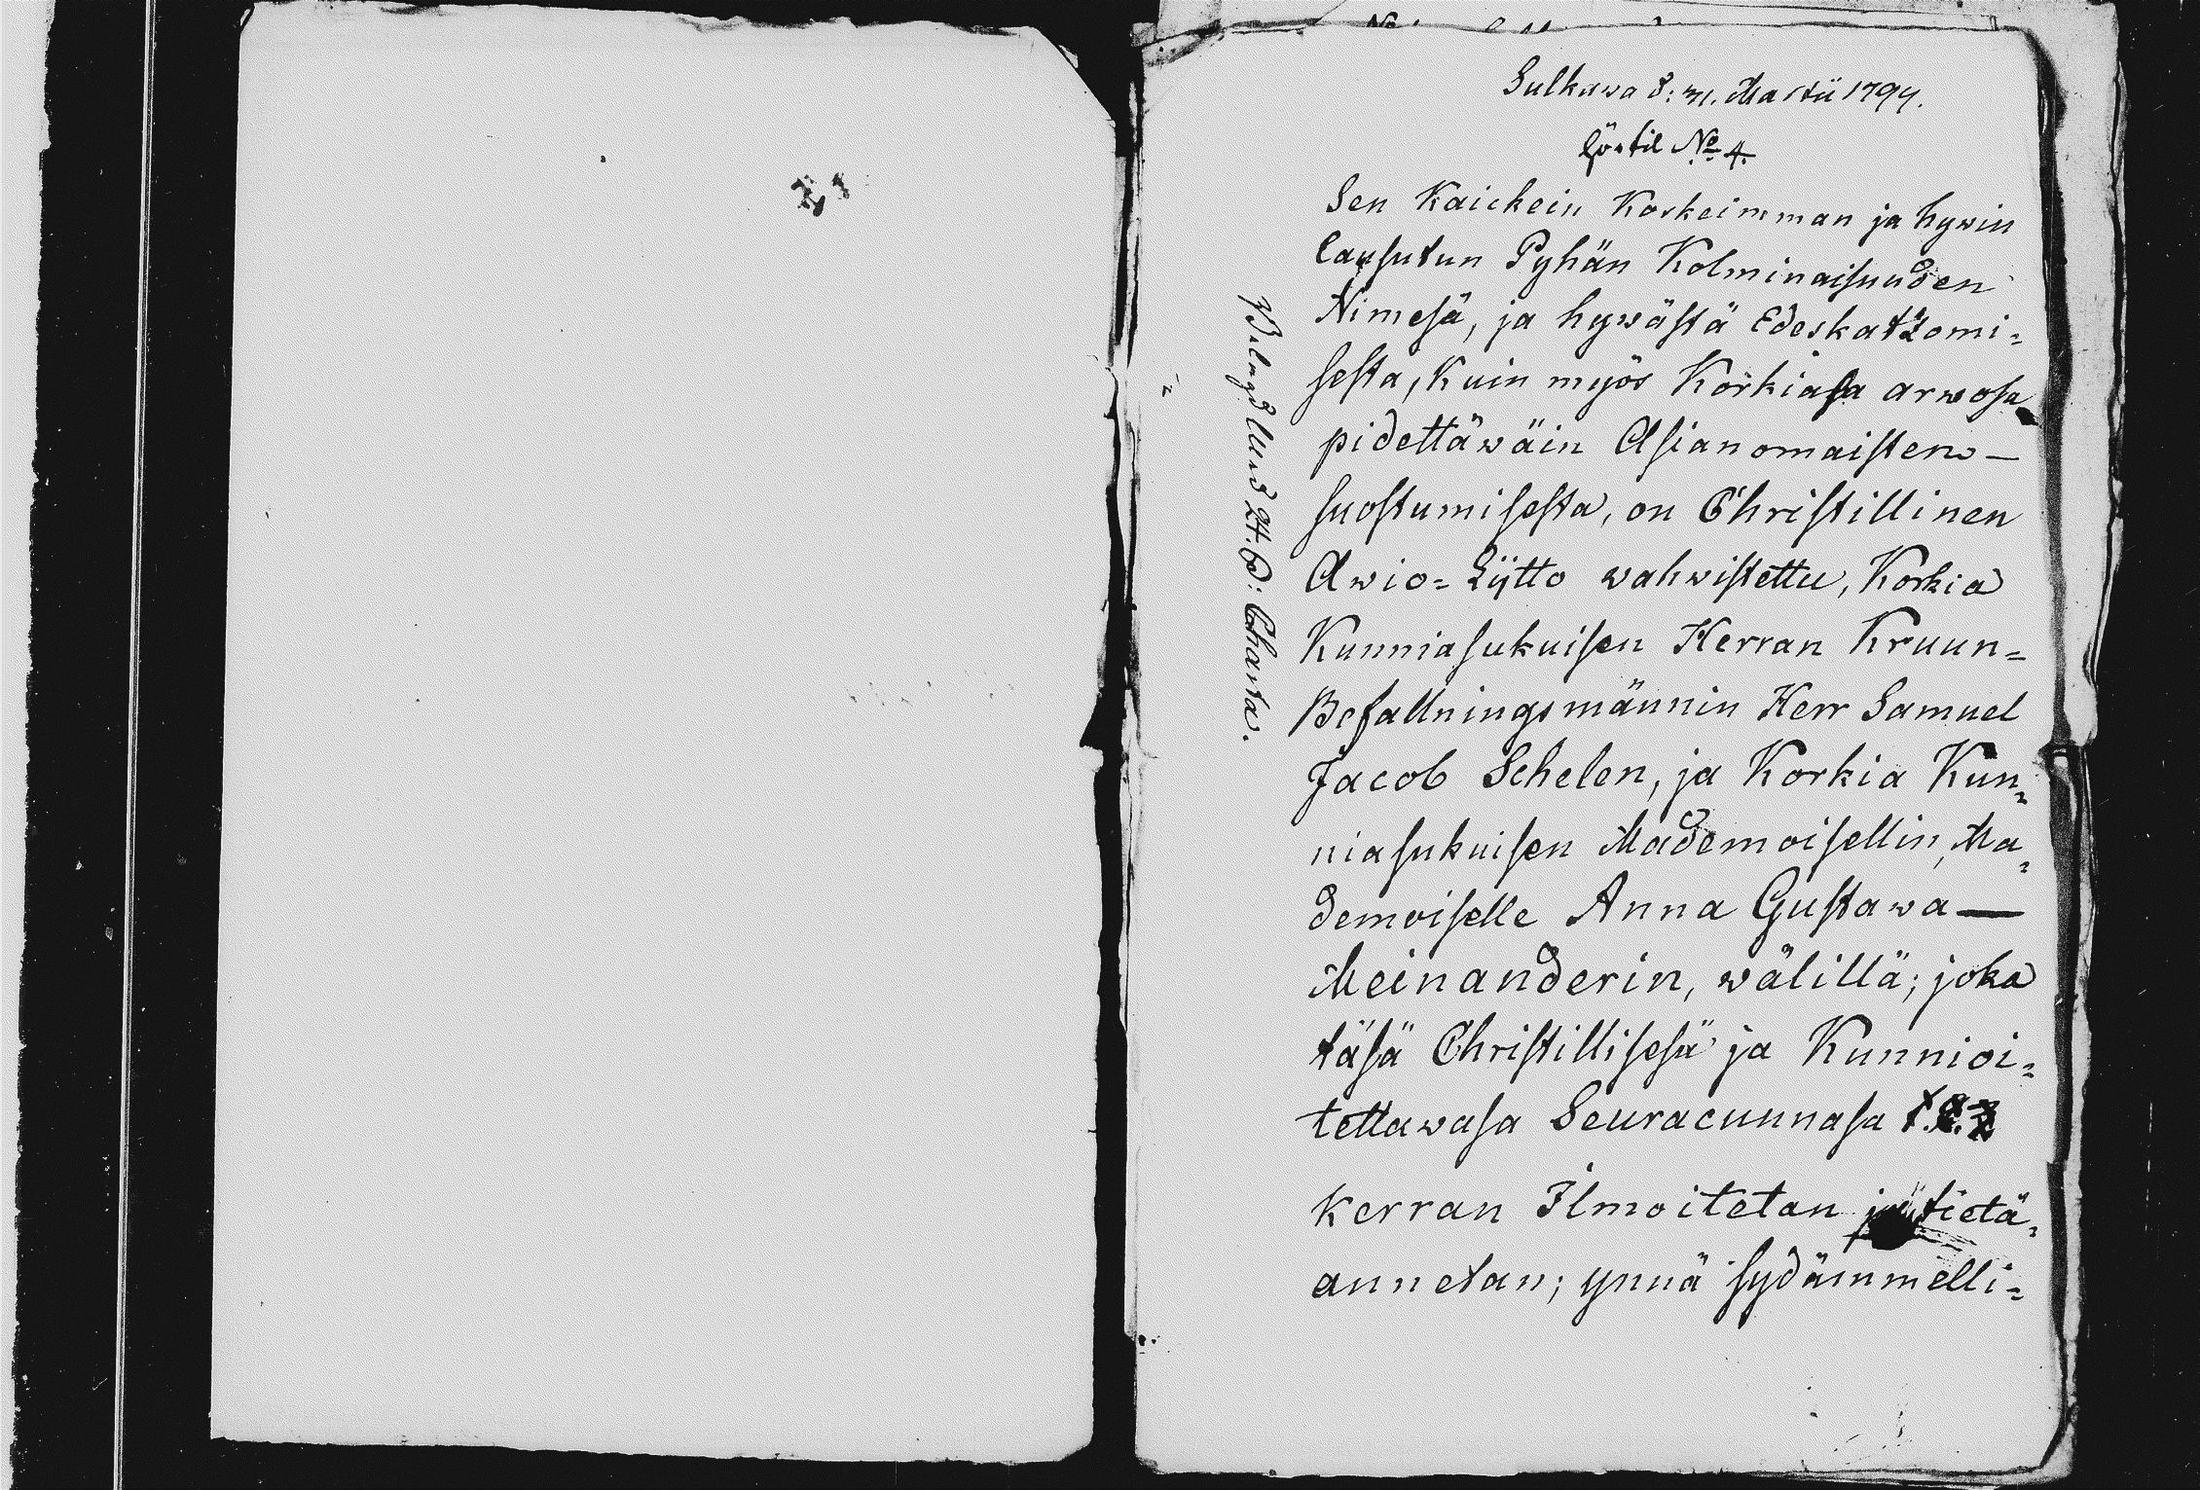 Sulkawa d: 31. Martii 1794.
N:o 4.
Sen Kaickein Korkeimman ja hywin
lausutun Pyhän Kolminaisuuden
Nimesä, ja hywästä Edeskatzomi=
sesta, Kuin myös Korkiasa arwosa
pidettäwäin Asianomaisten —
suostumisesta, on Christillinen
Awio=Liitto wahwistettu, Korkia
Kunniasukuisen Herran Kruun=
Befallningsmännin Herr Samuel
Jacob Schelen, ja Korkia Kun=
niasukuisen Mademoisellin, Ma=
demoiselle Anna Gustawa —
Meinanderin, wälillä; joka
täsä Christillisesä ja Kunnioi=
tettawasa Seuracunnasa
kerran Ilmoitetan ja tietä=
annetan; ynnä sydämmelli=
Belagd med 24. : Charta.